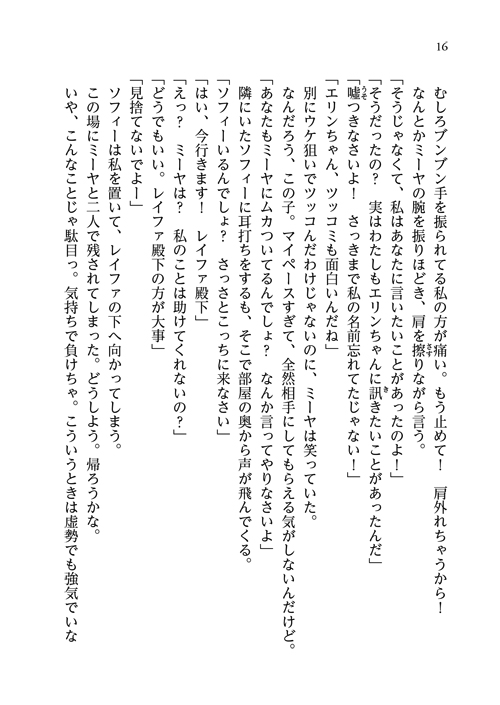 16
むしろブンブン手を振られてる私の方が痛い。もう止めて！　肩外れちゃうから！
なんとかミーヤの腕を振りほどき、肩を擦りながら言う。
「そうじゃなくて、私はあなたに言いたいことがあったのよ！」
「そうだったの？　実はわたしもエリンちゃんに訊きたいことがあったんだ」
「嘘つきなさいよ！　さっきまで私の名前忘れてたじゃない！」
「エリンちゃん、ツッコミも面白いんだね」
別にウケ狙いでツッコんだわけじゃないのに、ミーヤは笑っていた。
なんだろう、この子。マイペースすぎて、全然相手にしてもらえる気がしないんだけど。
「あなたもミーヤにムカついてるんでしょ？　なんか言ってやりなさいよ」
隣にいたソフィーに耳打ちをするも、そこで部屋の奥から声が飛んでくる。
「ソフィーいるんでしょ？　さっさとこっちに来なさい」
「はい、今行きます！　レイファ殿下」
「えっ？　ミーヤは？　私のことは助けてくれないの？」
「どうでもいい。レイファ殿下の方が大事」
「見捨てないでよー」
ソフィーは私を置いて、レイファの下へ向かってしまう。
この場にミーヤと二人で残されてしまった。どうしよう。帰ろうかな。
いや、こんなことじゃ駄目っ。気持ちで負けちゃ。こういうときは虚勢でも強気でいな